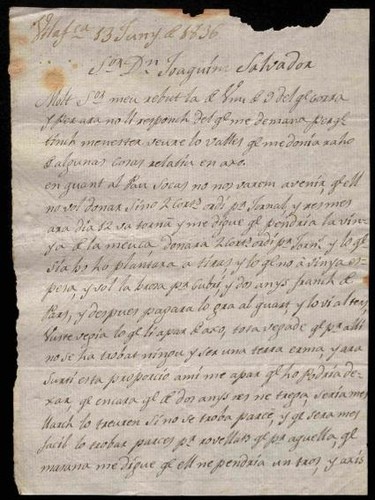 Vilafca 13 Juny de 1836
Sor Dn Joaquim Salvador
Molt Sor meu rebut la de Vm de 9 del qe corra
y per ara no li responch del qe me demana perqe
tinch menester veure lo Valles qe me donia raho
de algunas cosas relatiu en axo.
en quant al Pau Socas no nos varem avenir qe ell
no vol donar sino 2 cortes ordi pr Jornal, y res mes
ara dia 12 va torna y me digue qe pendria la vin
ya de la meuca donara 2 cortes ordi pr Jornl y lo qe
sia bo ho plantara a tiras, y lo qe no a vinya es
pesa, y sol la brosa pr cubri, y dos anys franch de
Pars, y despues pagara lo gra al quart, y lo vi al ters,
Vuste vegia lo qe li apar de axo, tota vegade qe pr alli
no se ha trobat ningu y ser una terra erma y ara
surti esta proporcio a mi me apar qe ho podria de
xar qe encara qe de dos anys res ne trega, seria mes
llarch lo treuren si no se troba parce, y qe sera mes
facil lo trobar parces pr rovellats qe pr aquella, qe
mariana me digue qe ell ne pendria un tros, y axis